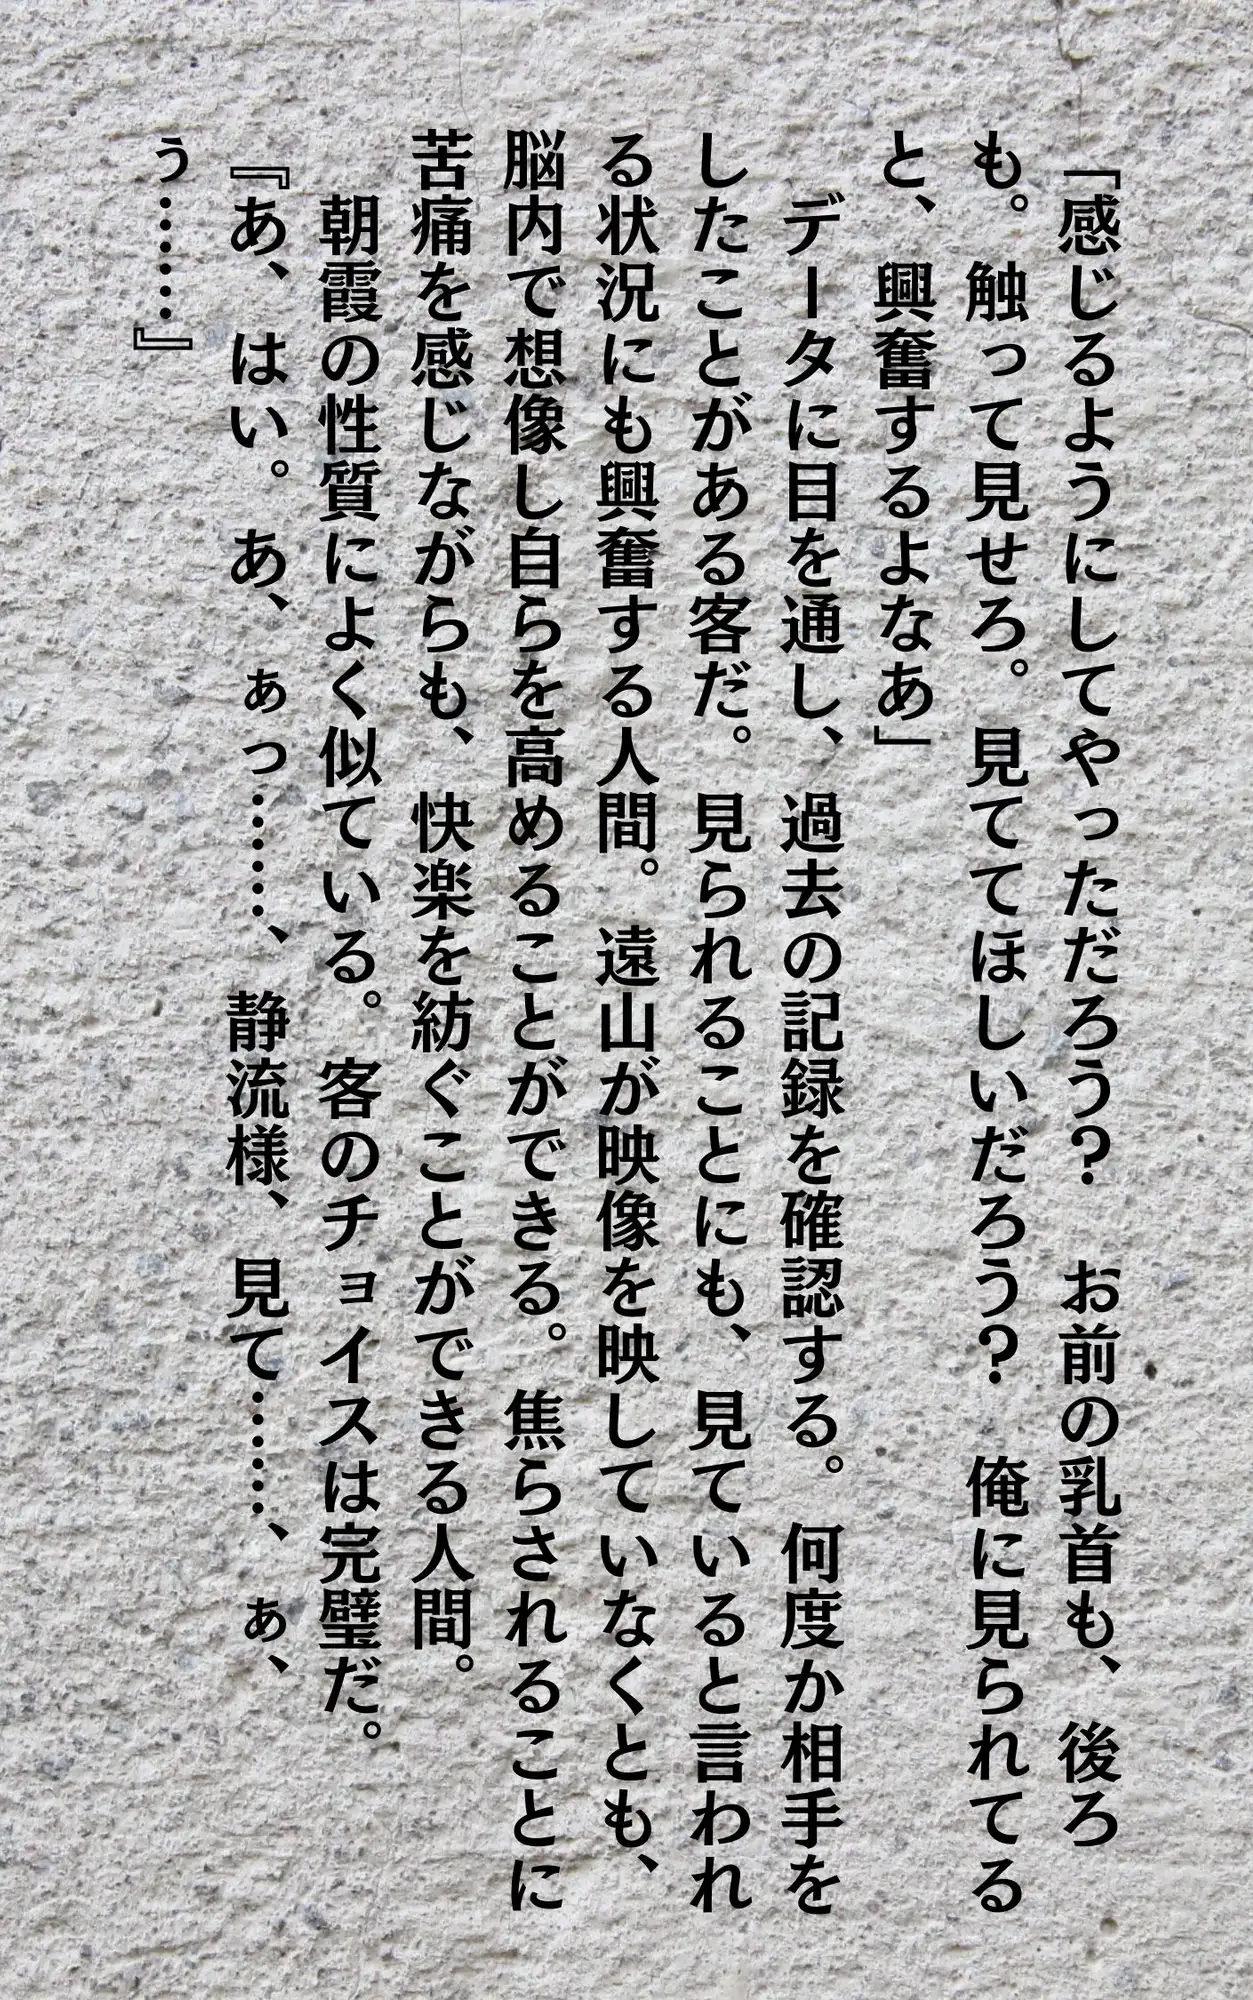 「感じるようにしてやっただろう？　お前の乳首も、後ろ
も。触って見せろ。見ててほしいだろう？　俺に見られてる
と、興奮するよなあ」
　データに目を通し、過去の記録を確認する。何度か相手を
したことがある客だ。見られることにも、見ていると言われ
る状況にも興奮する人間。遠山が映像を映していなくとも、
脳内で想像し自らを高めることができる。焦らされることに
苦痛を感じながらも、快楽を紡ぐことができる人間。
　朝霞の性質によく似ている。客のチョイスは完璧だ。
『あ、はい。あ、ぁっ……、静流様、見て……、ぁ、
ぅ……』